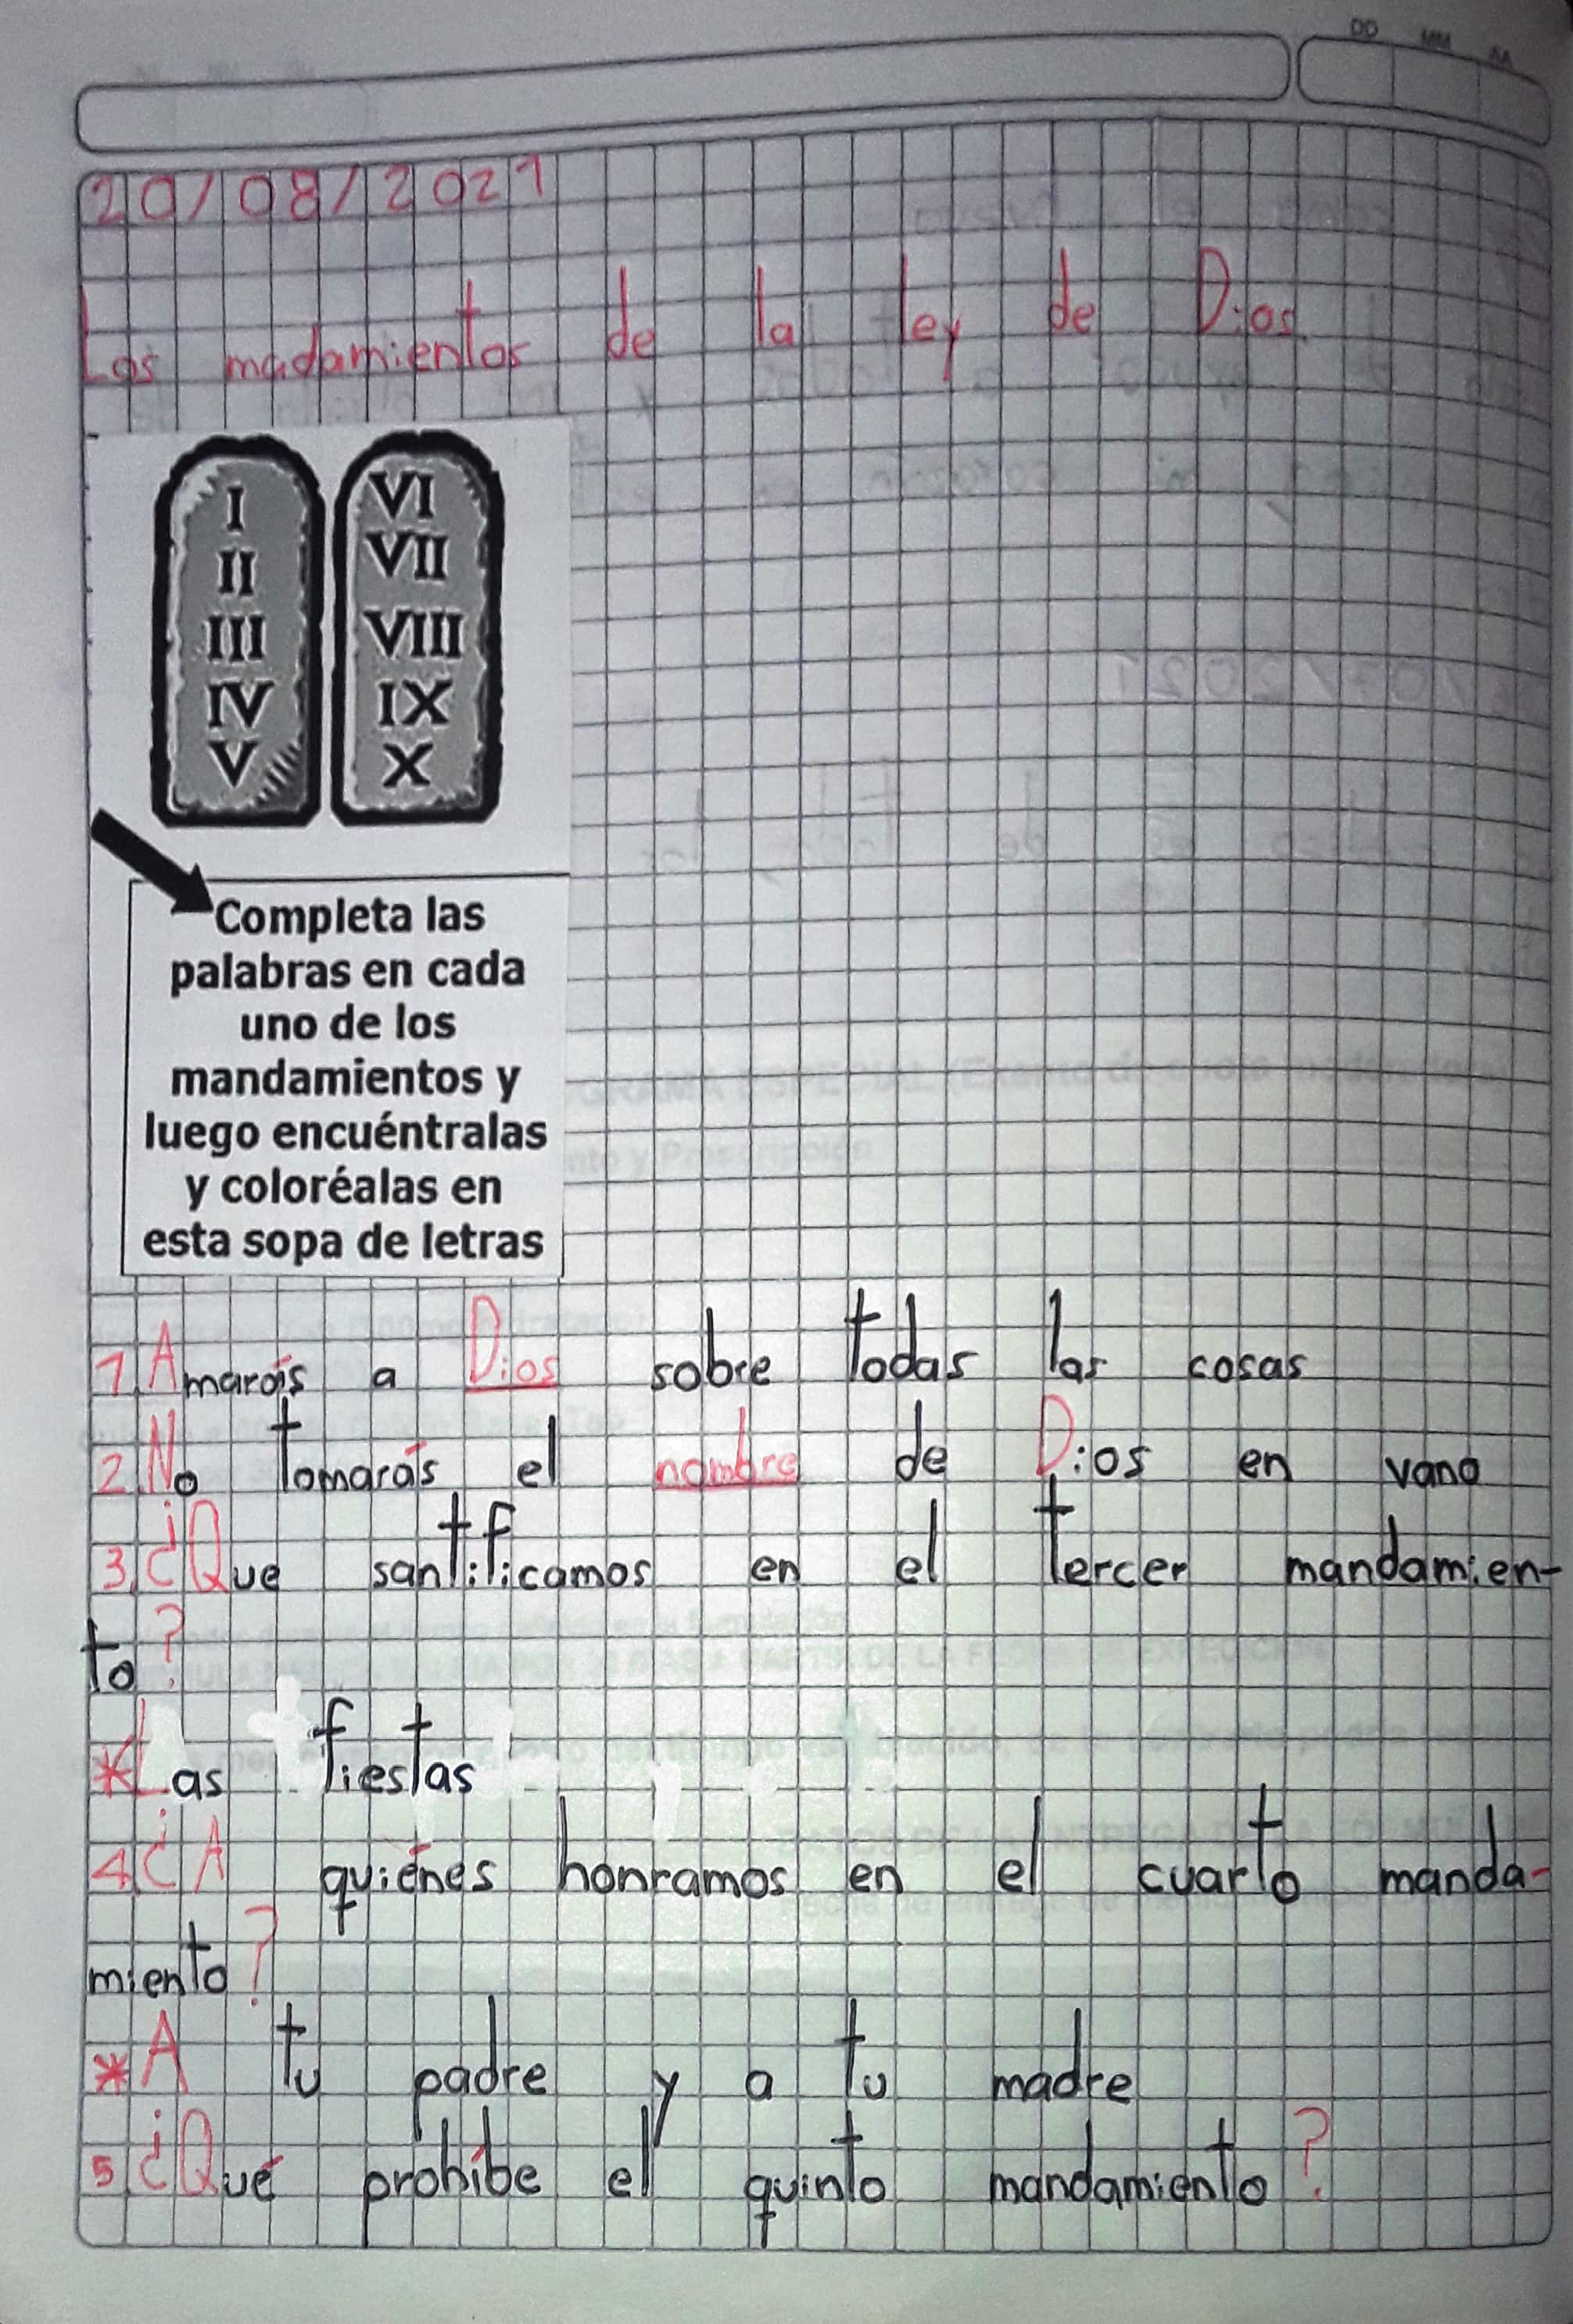 DD MM AA
20/08/2021
Los madamientos de la ley de Dios
I
II
III
IV
V
VI
VII
VIII
IX
X
Completa las
palabras en cada
uno de los
mandamientos y
luego encuéntralas
y coloréalas en
esta sopa de letras
1. Amarás a Dios sobre todas las cosas
2. No tomarás el nombre de Dios en vano
3. ¿Que santificamos en el tercer mandamien-
to?
*Las fiestas
4. ¿A quiénes honramos en el cuarto manda-
miento?
*A tu padre y a tu madre
5. ¿Qué prohíbe el quinto mandamiento?